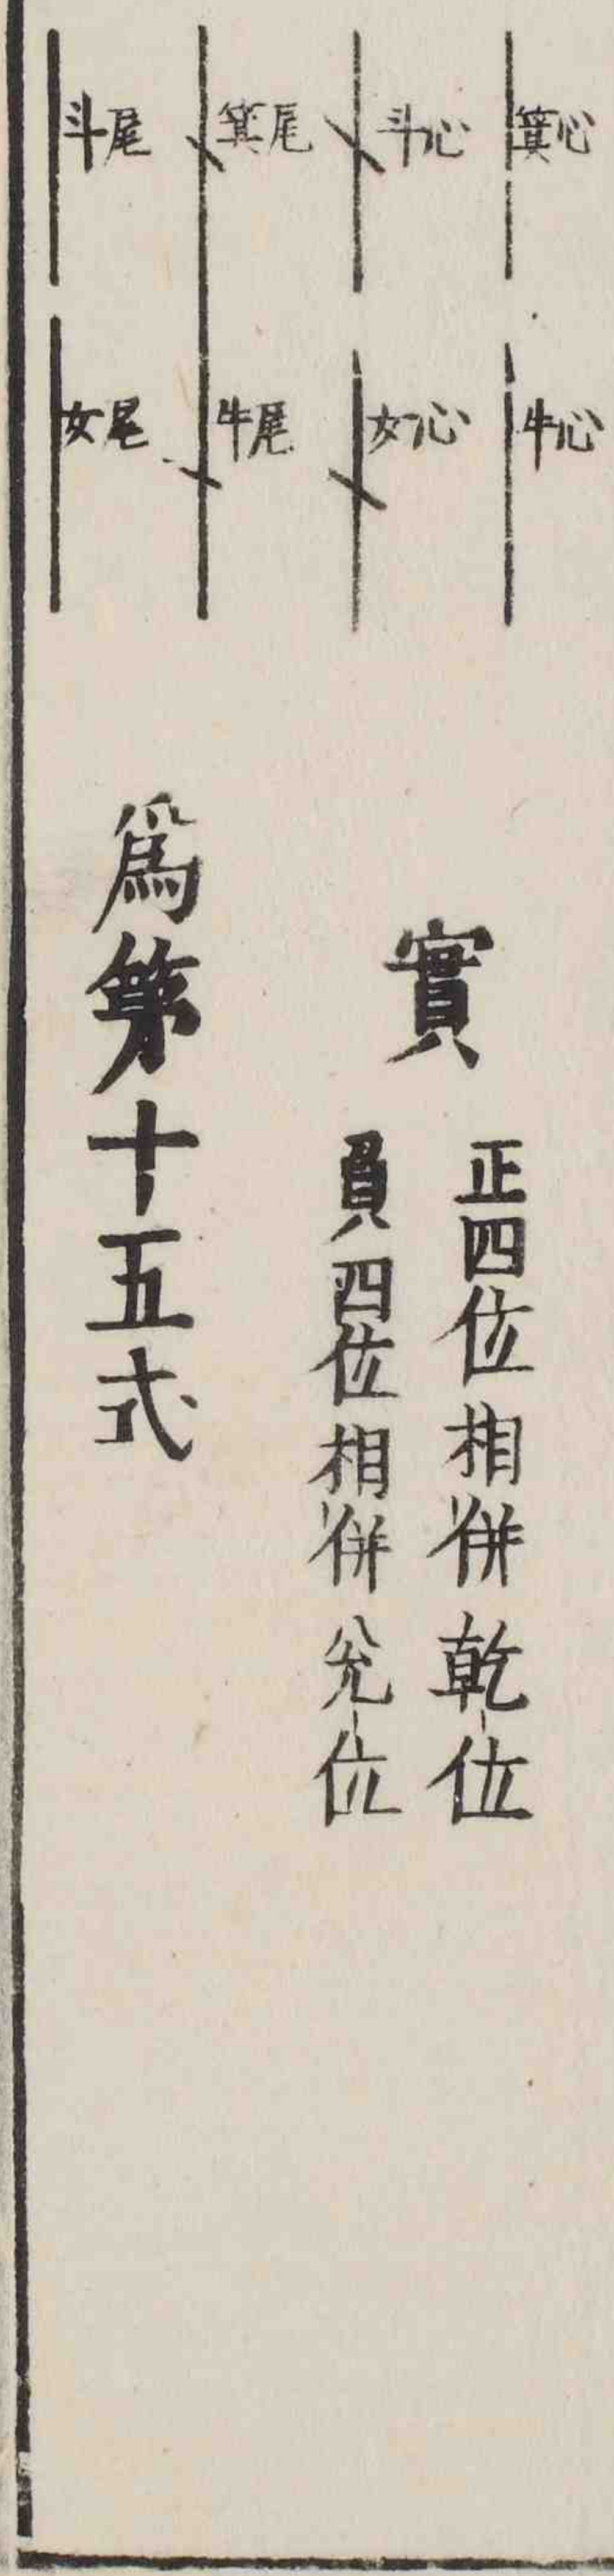 箕心
牛心
斗心
女心
箕尾
牛尾
斗尾
女尾
實
正四位相併乾位
負四位相併兊位
爲第十五式